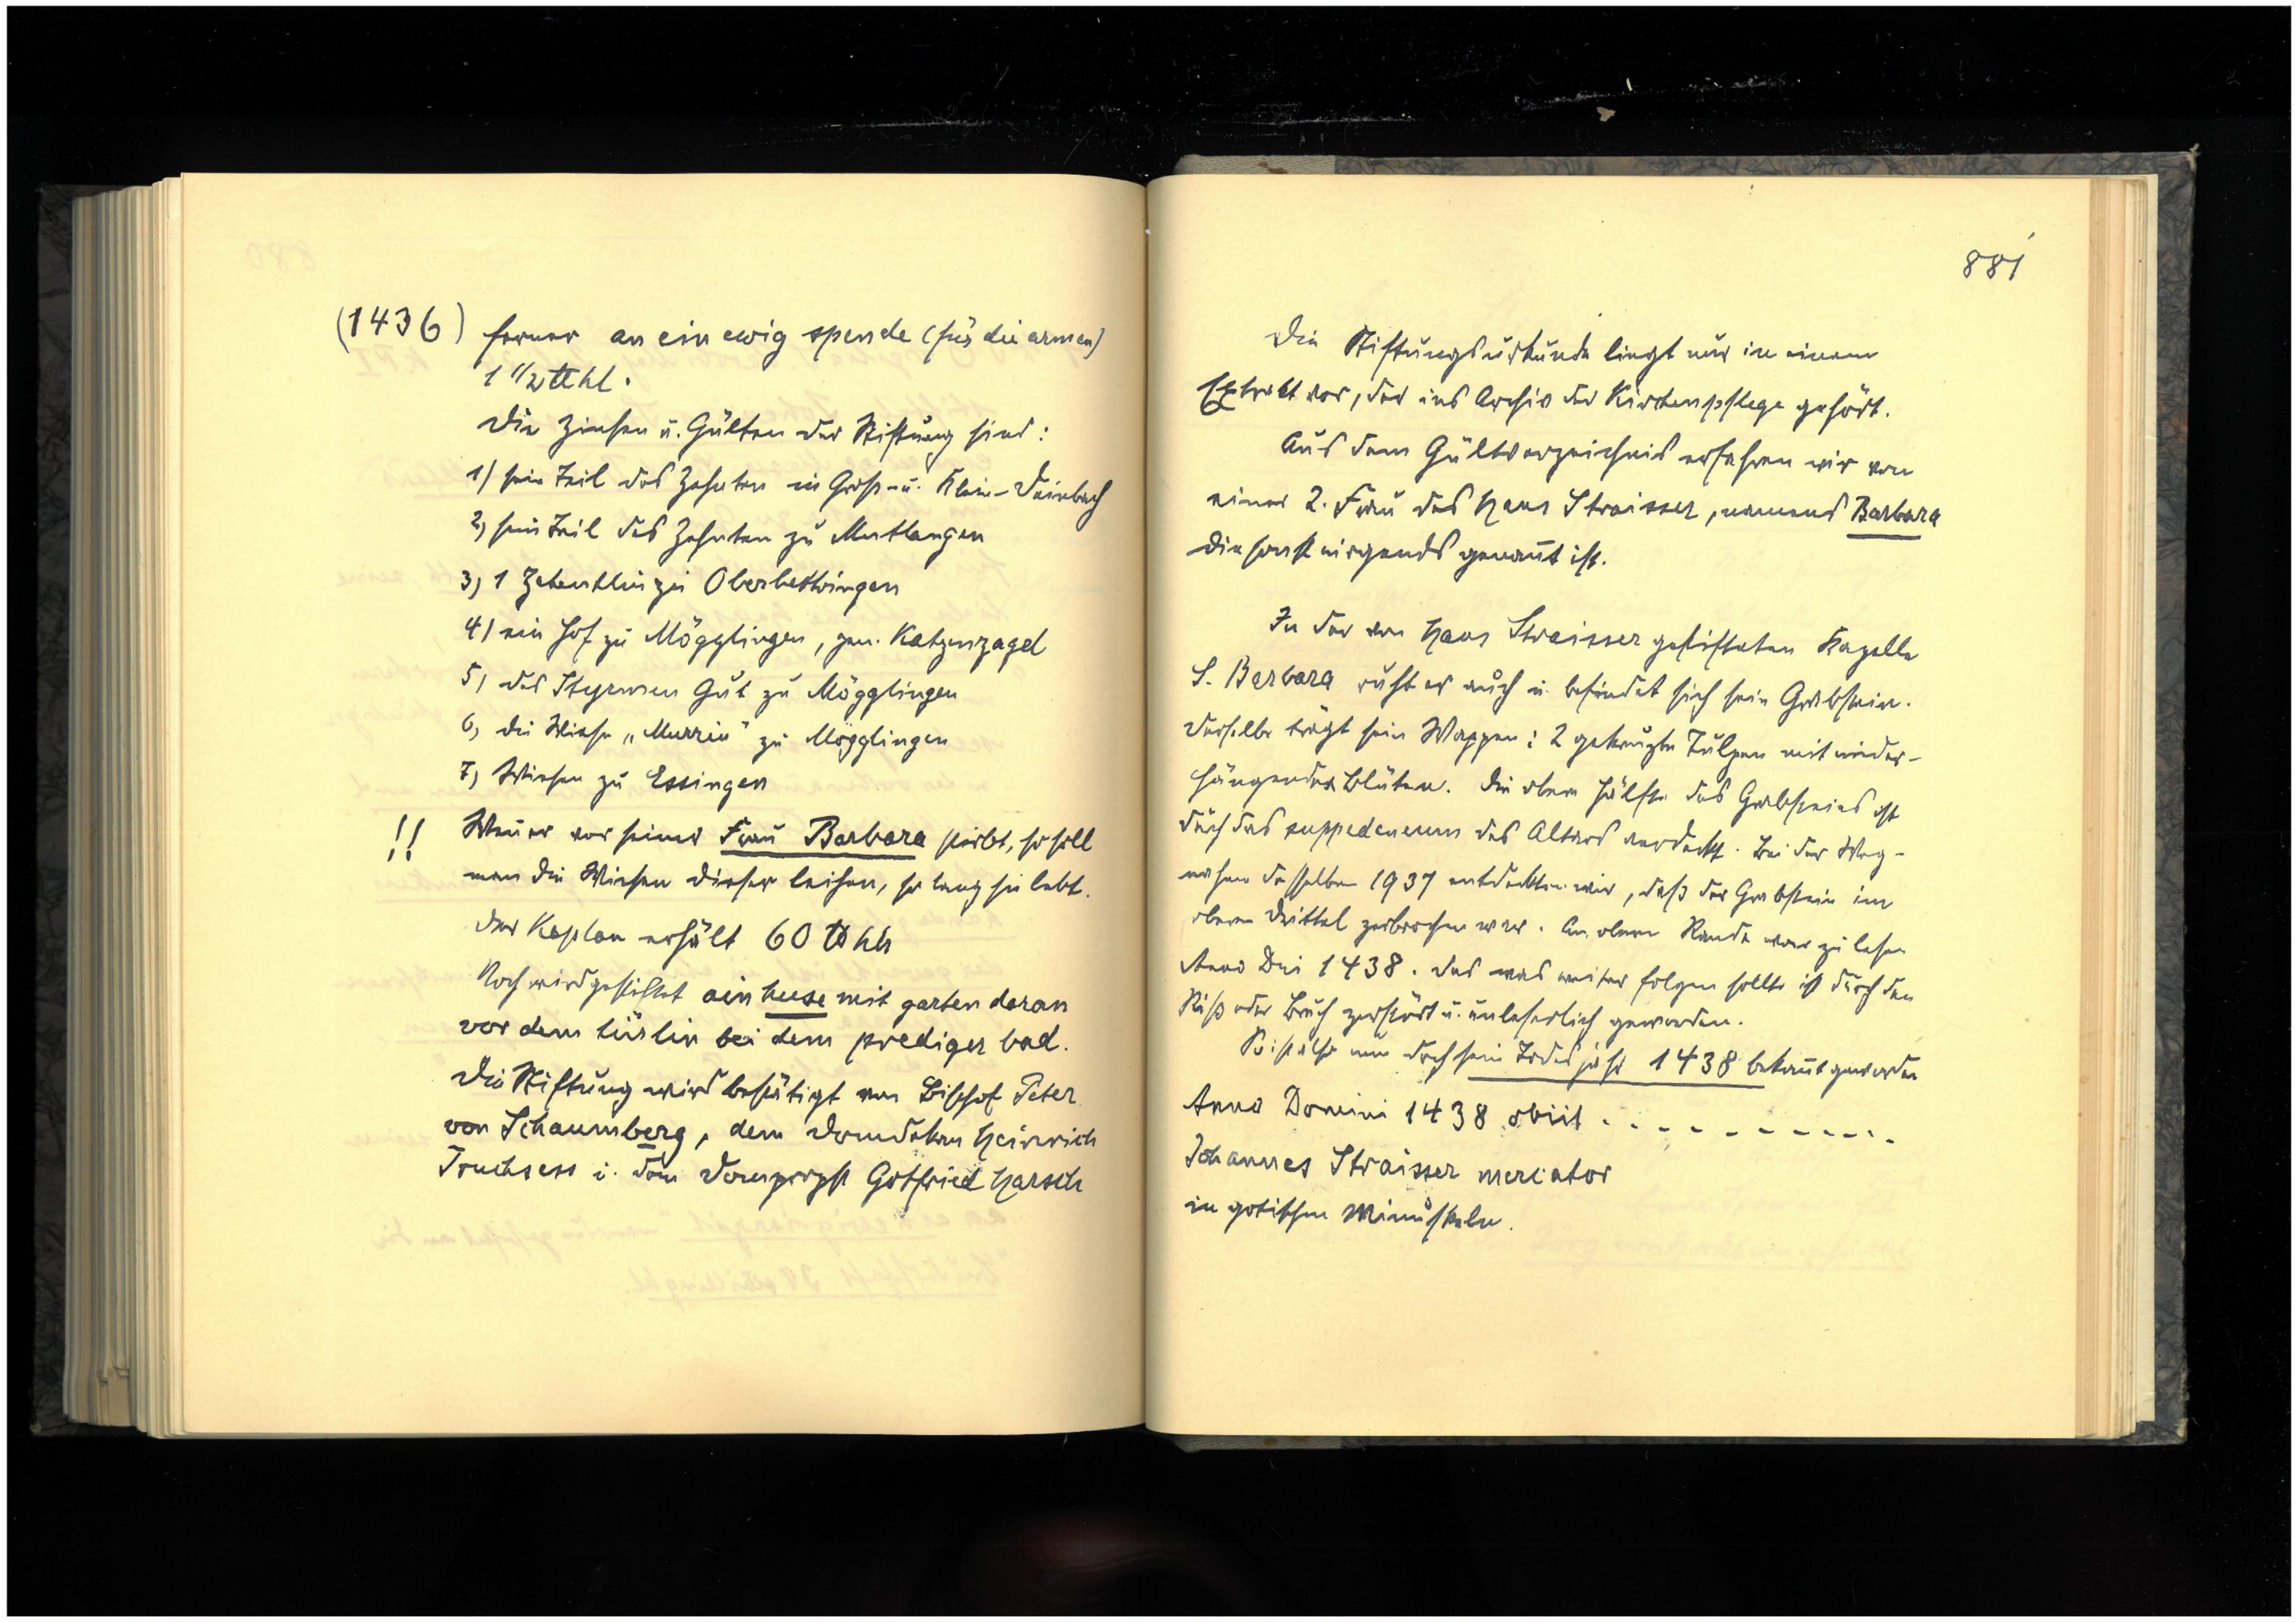 (1436) ferner an ein ewig spende (für die armen)
1 1/2 ℔ hl.
Die Zinsen u. Gülten der Stiftung sind:
1) sein Teil des Zehnten in Groß- u. Klein-Deinbach
2) sein Teil des Zehnten zu Mutlangen
3) 1 Zehentlin zu Oberbettringen
4) ein Hof zu Mögglingen, gen. Katzenzagel
5) des Styrmen Gut zu Mögglingen
6) die Wiese „Murrin" zu Mögglingen
7) Wiesen zu Essingen
!! Wenn er vor seiner Frau Barbara stirbt, so soll
man die Wiesen dieser leihen, so lang sie lebt.
Der Kaplan erhält 60 ℔ hlr
Noch wird gestiftet ain huse mit garten daran
vor dem türlin bei dem prediger bad.
Die Stiftung wird bestätigt von Bischof Peter
von Schaumberg, dem Domdekan Heinrich
Truchsess u. dem Dompropst Gotfried Harsch
881
Die Stiftungsurkunde liegt nur in einem
Extrakt vor, der ins Archiv der Kirchenpflege gehört.
Aus dem Gültverzeichnis erfahren wir von
einer 2. Frau des Hans Straisser, namens Barbara
die sonst nirgends genannt ist.
In der von Hans Straisser gestifteten Kapelle
S. Barbara ruht er auch u. befindet sich sein Grabstein.
Derselbe trägt sein Wappen: 2 gekreuzte Tulpen mit nieder-
hängenden Blüten. Die obere Hälfte des Grabsteines ist
durch das suppedaneum des Altars verdeckt. Bei der Weg-
nahme desselben 1937 entdeckten wir, daß der Grabstein im
oberen Drittel zerbrochen war. Am obern Rande war zu lesen
Anno Dni 1438. Das was weiter folgen sollte ist durch den
Riß oder Bruch zerstört u. unleserlich geworden.
So ist also nun doch sein Todesjahr 1438 bekannt geworden
Anno Domini 1438 obiit . . . . . . . . . . .
Johannes Straisser mercator
in gotischen Minuskeln.